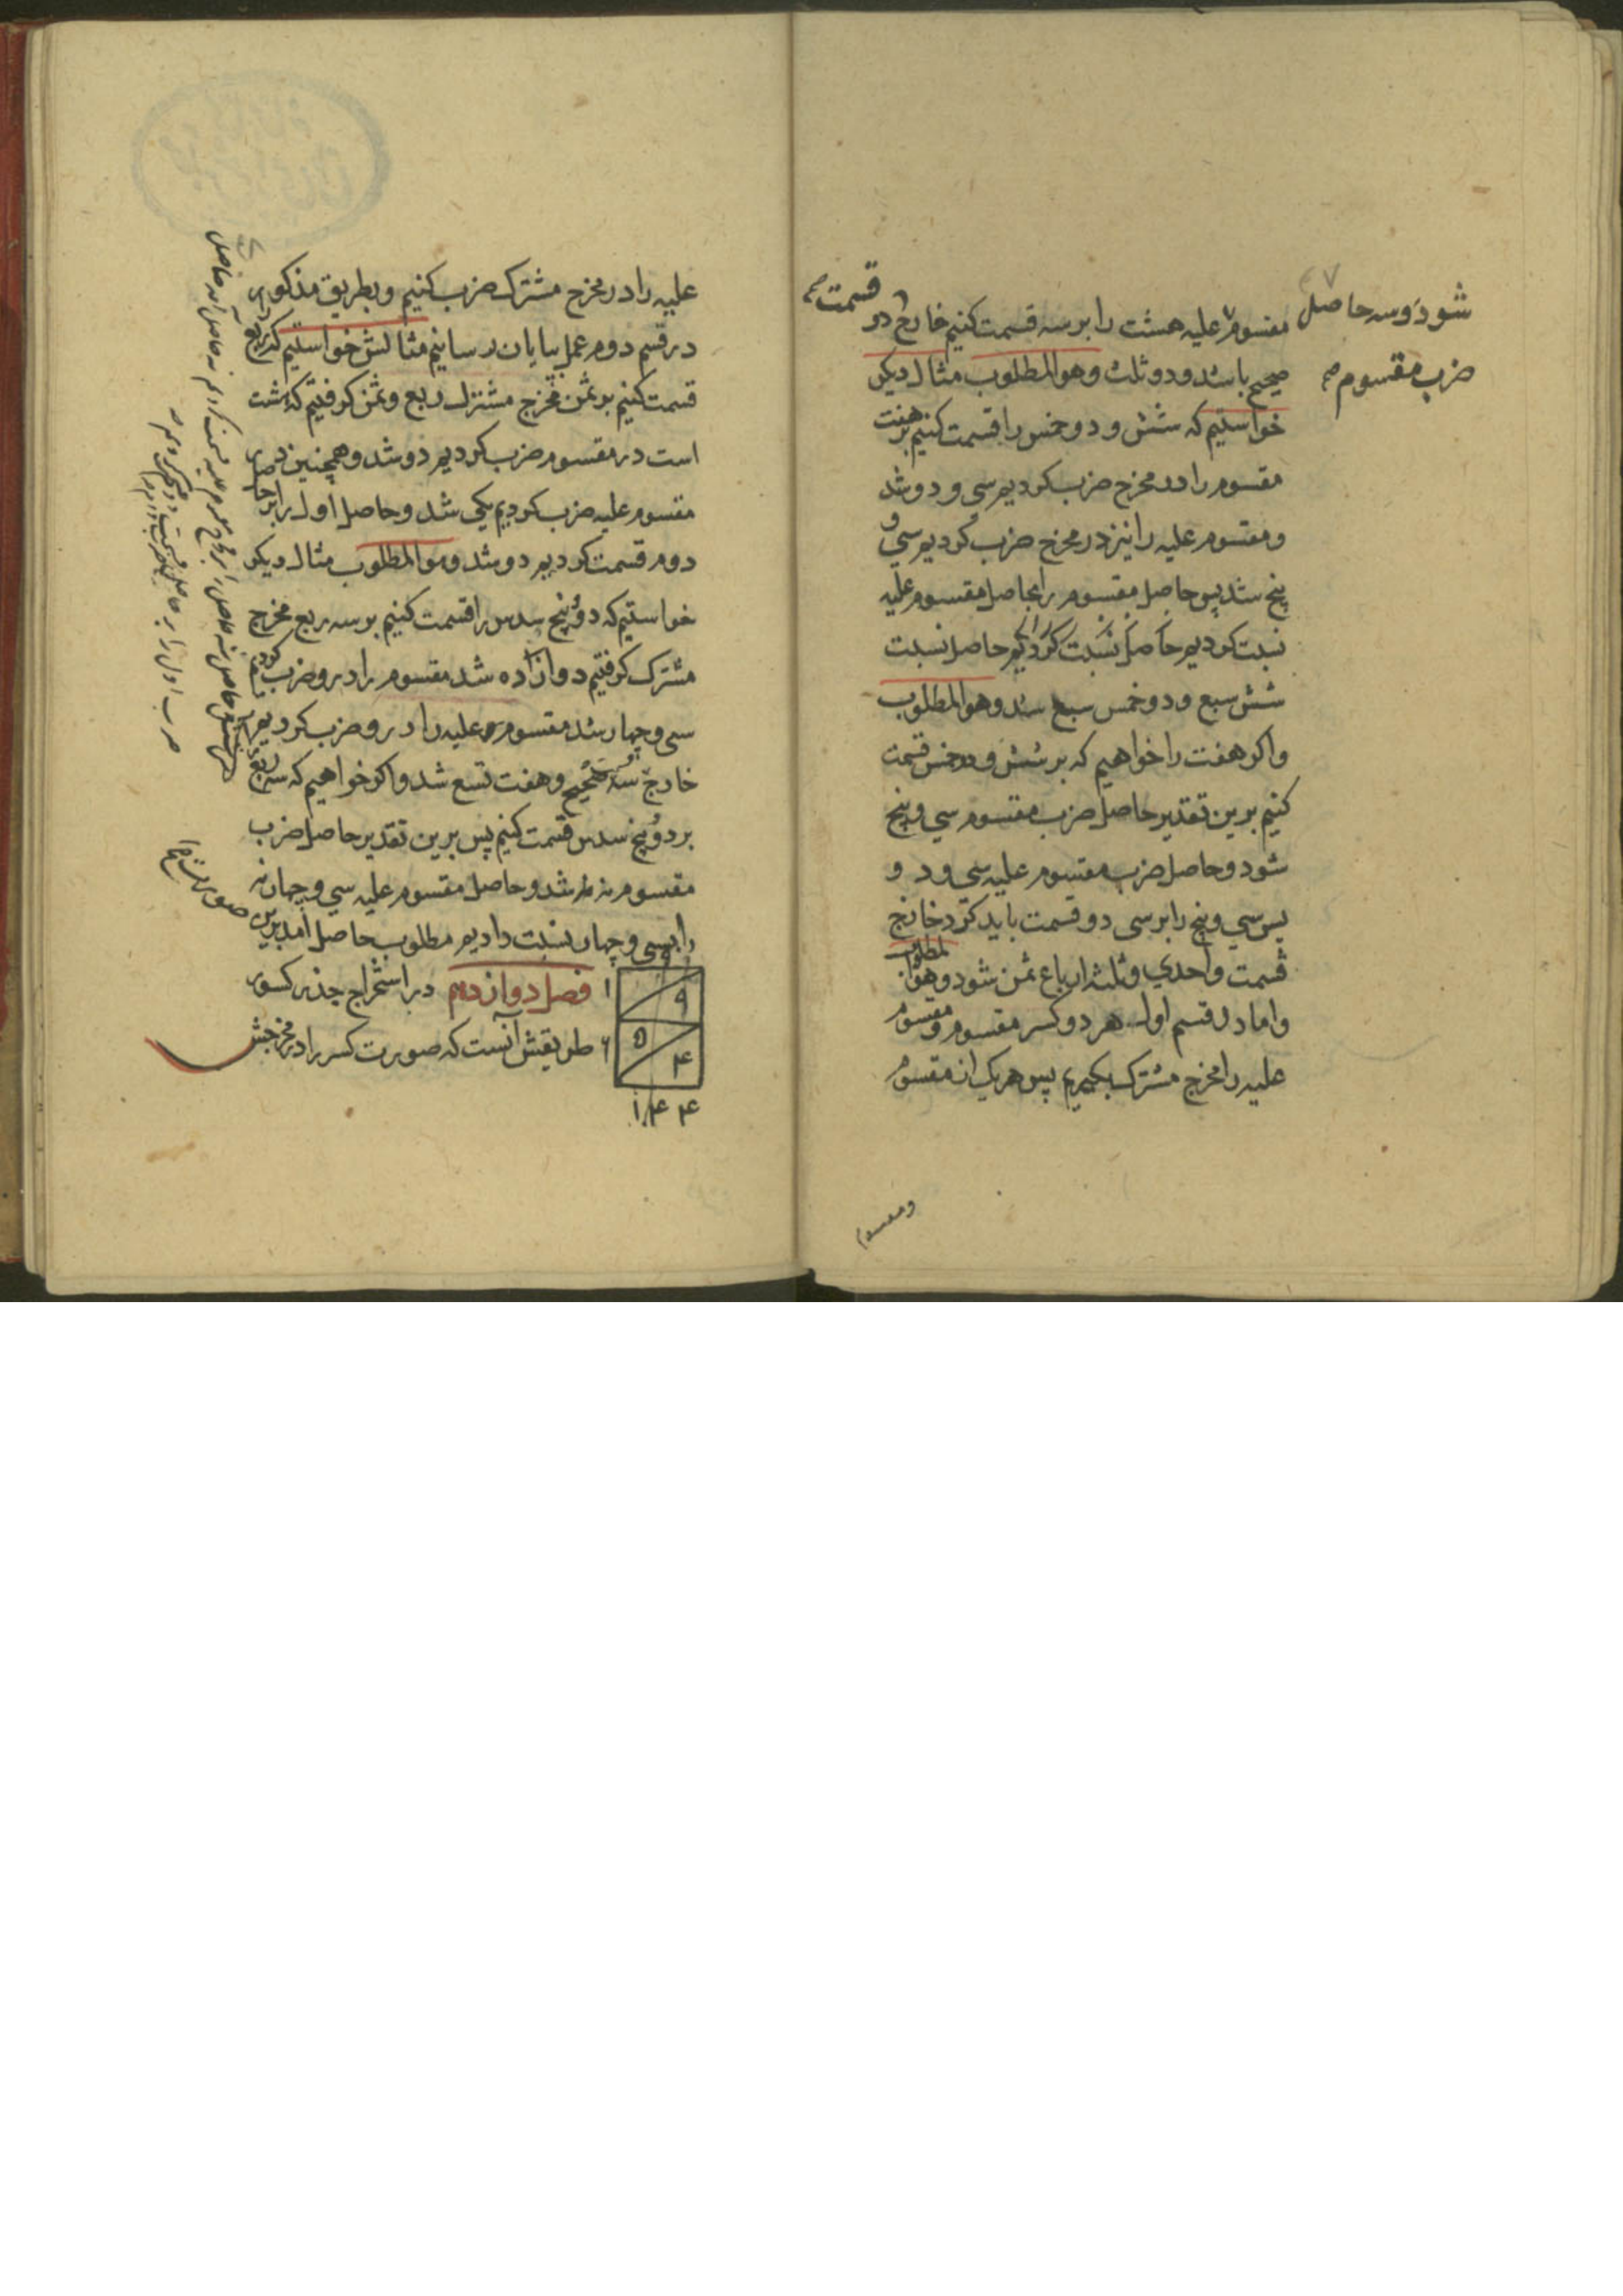 ۴۷
شود و سه حاصل
ضرب مقسوم
مقسوم علیه هشت را بر سه قسمت کنیم خارج قسمت دو
صحیح باشد و دو ثلث و هو المطلوب مثال دیکر
خواستیم که شش و دو خمس را قسمت کنیم بر هفت
مقسوم را در مخرج ضرب کردیم سی و دو شد
و مقسوم علیه را نیز در مخرج ضرب کردیم سی و
پنج شد پس حاصل مقسوم را بحاصل مقسوم علیه
نسبت کردیم حاصل نسبت کردیم حاصل نسبت
شش سبع و دو خمس سبع شد و هو المطلوب
و اکر هفت را خواهیم که بر شش و دو خمس قسمت
کنیم برین تقدیر حاصل ضرب مقسوم سی و پنج
شود و حاصل ضرب مقسوم علیه سی و د و
پس سی و پنج را بر سی دو قسمت باید کرد خارج
قسمت واحدی و ثلثه ارباع ثمن شود و هو المطلوب
و اما در قسم اول هر دو کسر مقسوم و مقسوم
علیه را مخرج مشترک بکیریم پس هر یک از مقسوم
و مقسوم
علیه را در مخرج مشترک ضرب کنیم و بطریق مذکور
در قسم دوم عمل بپایان رسانیم مثالش خواستیم که ربع را
قسمت کنیم بر ثمن مخرج مشترک ربع و ثمن کرفتیم که هشت
است در مقسوم ضرب کردیم دو شد و همچنین در
مقسوم علیه ضرب کردیم یکی شد و حاصل اول را بر حاصل
دوم قسمت کردیم دو شد و هو المطلوب مثال دیکر
خواستیم که دو و پنج سدس را قسمت کنیم بر سه ربع مخرج
مشترک کرفتیم دوازده شد مقسوم را درو ضرب کردیم
سی و چهار شد مقسوم علیه را درو ضرب کردیم
خارج سه صحیح و هفت تسع شد و اکر خواهیم که سه ربع را
بر دو و پنج سدس قسمت کنیم پس برین تقدیر حاصل ضرب
مقسوم نه شد و حاصل مقسوم علیه سی و چهار نه
را بسی و چهار نسبت دادیم مطلوب حاصل آمد برین صورت
فصل دوازدهم در استخراج جذر کسور
طریقش آنست که صورت کسر را در مخرجش
۱
۹
۶
۵
۴
۱ ۴ ۴